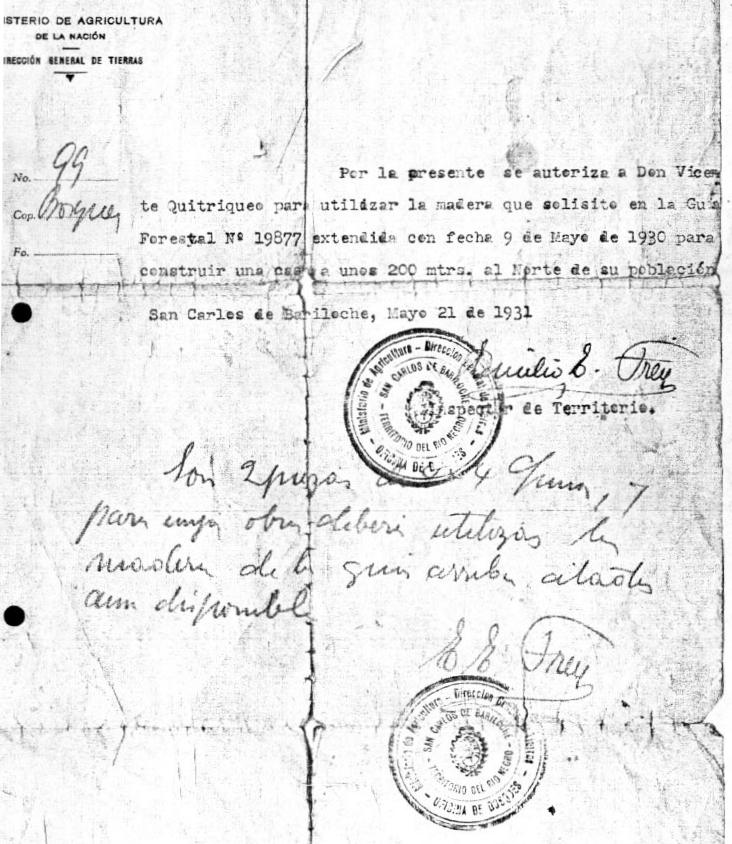 ISTERIO DE AGRICULTURA
DE LA NACIÓN
IRECCIÓN GENERAL DE TIERRAS
No. 99
Cop. Bosques
Fo.
Por la presente se autoriza a Don Vicen
te Quitriqueo para utilizar la madera que solisito en la Guia
Forestal Nº 19877 extendida con fecha 9 de Mayo de 1930 para
construir una casa a unos 200 mtrs. al Norte de su población
San Carlos de Bariloche, Mayo 21 de 1931
Emilio E. Frey
Inspector de Territorio.
Ministerio de Agricultura - Dirección General de
SAN CARLOS DE BARILOCHE
TERRITORIO DEL RIO NEGRO
OFICINA DE
Son 2 piezas de 4 y
para cuya obra deberá utilizar la
madera de la guia arriba citada
aun disponible
E E Frey
Ministerio de Agricultura - Dirección
SAN CARLOS DE BARILOCHE
TERRITORIO DEL RIO NEGRO
OFICINA DE BOSQUES